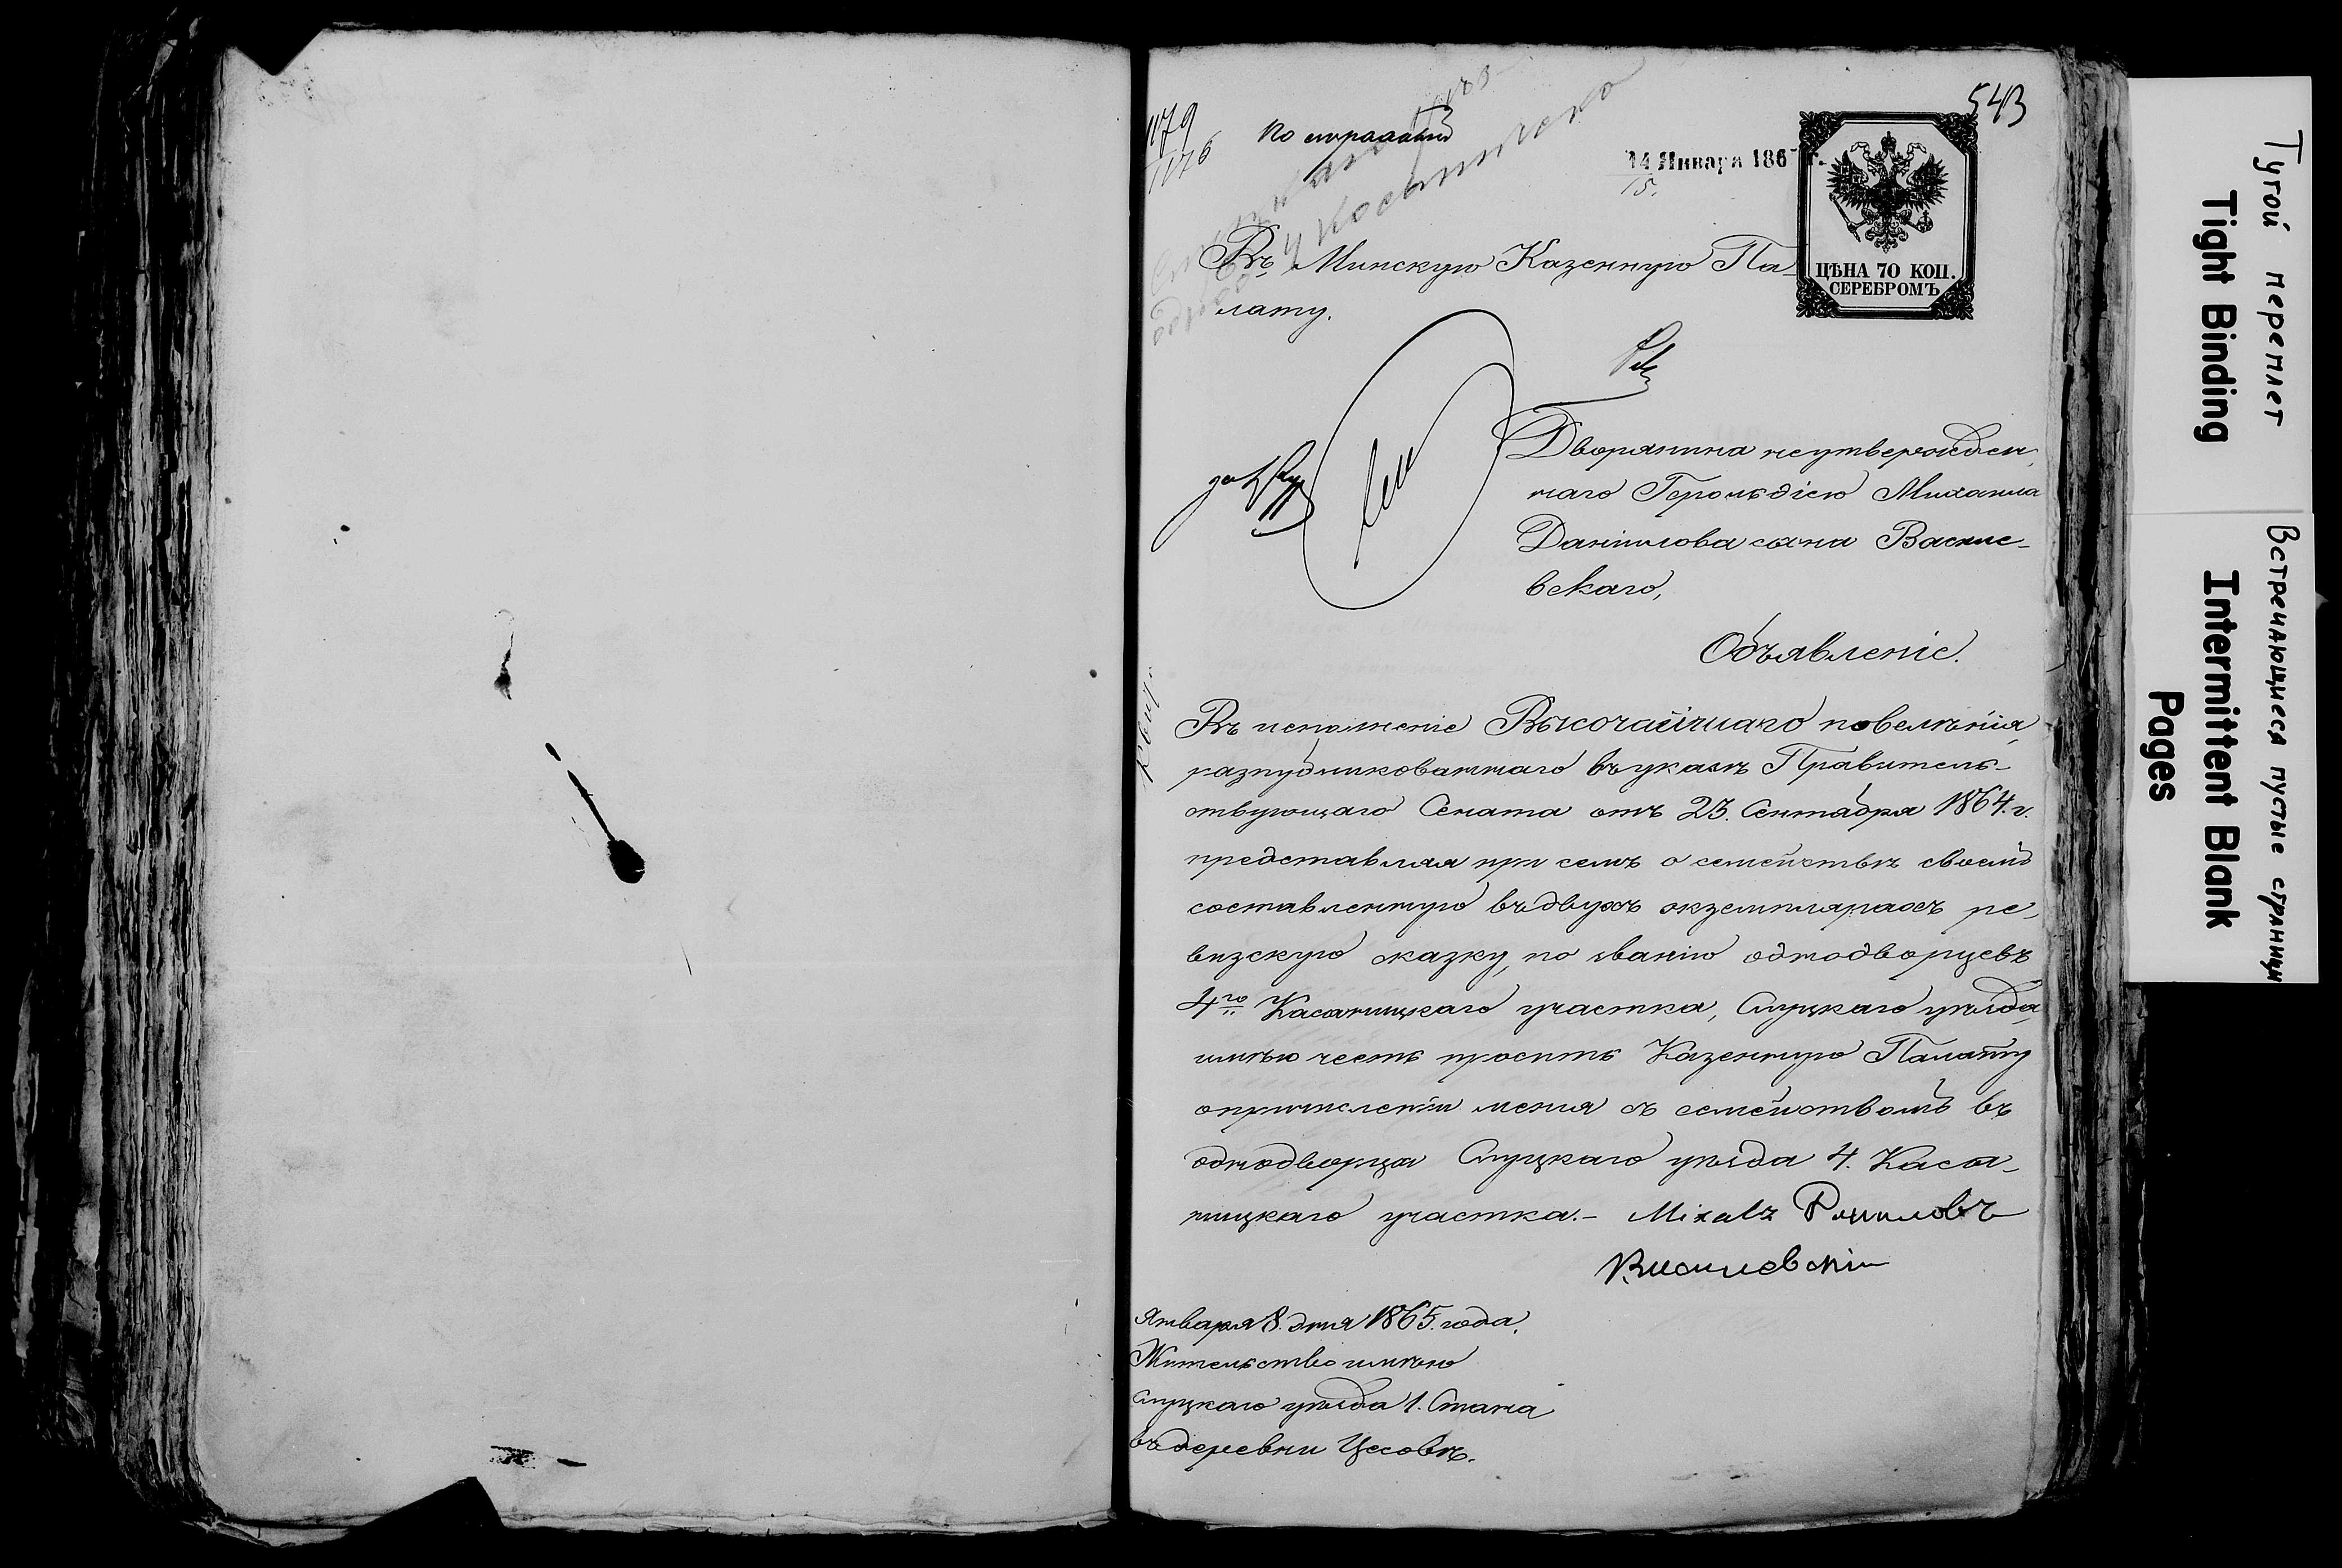 543
1179
1176
14 Января 186 г.
15.
ЦѢНА 70 КОП.
СЕРЕБРОМЪ
Въ Минскую Казенную Па-
лату.
Дворянина неутвержден,
наго Герольдіею Михаила
Даніилова сына Василе-
вскаго,
Объявленіе.
Въ исполненіе Высочайшаго повелѣнія,
разпубликованнаго въ указѣ Правитель-
ствующаго Сената отъ 23. Сентября 1864. г.
представляя при семъ о семействѣ своемъ
составленную въ двухъ экземплярахъ ре,
визскую сказку, по званію однодворцевъ
4го Касаницкаго участка, Слуцкаго уѣзда,
имѣю честь просить Казенную Палату
опричисленіи меня съ семействомъ въ
однодворца Слуцкаго уѣзда 4. Каса-
ницкаго участка.-
Василевскій
Января 8. дня 1865. года.
Жительство имѣю
Слуцкаго уѣзда 1. Стана
въ деревни Цесовѣ.
Тугой переплет
Tight Binding
Встречающиеся пустые страницы
Intermittent Blank
Pages